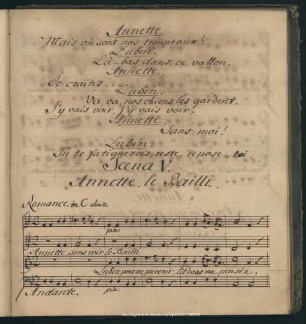 Annette
Mais où sont nos troupeaux?
Lubin.
Là-bas dans ce vallon.
Annette.
Je crains...
Lubin.
Va, va, nos chiens les gardent.
J'y vais voir, j'y vais voir!
Annette
Sans moi!
Lubin.
Tu te fatigueras, reste, repose-toi
Scena V.
Annette, le Bailli.
Romance. in C dur
Annette, sans voir le Bailli
Lubin pour me prevenir, lit dans ma pensée,
Andante.